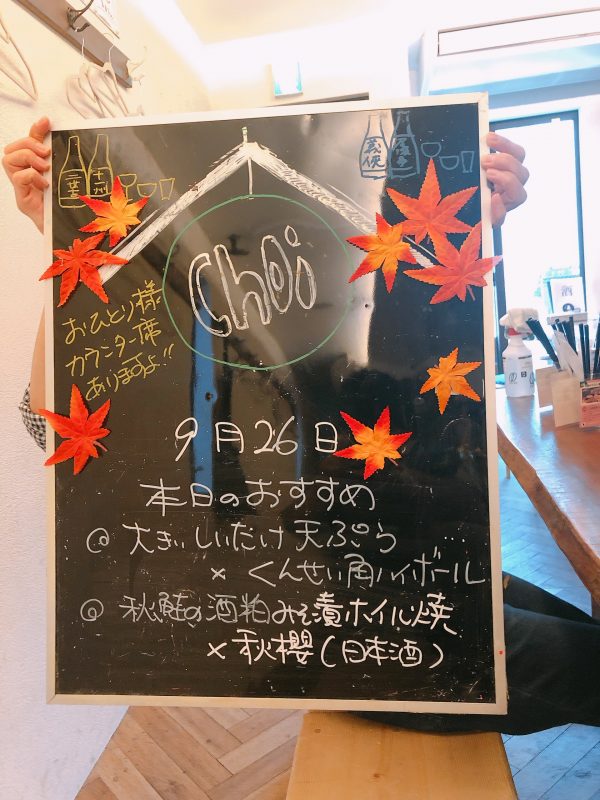 義侠
Choi
おひとり様
カウンター席
ありますよ!!
9月26日
本日のおすすめ
@ 大きいしいたけ天ぷら
× くんせい角ハイボール
@ 秋鮭の酒粕みそ漬ホイル焼
× 秋櫻(日本酒)
酒